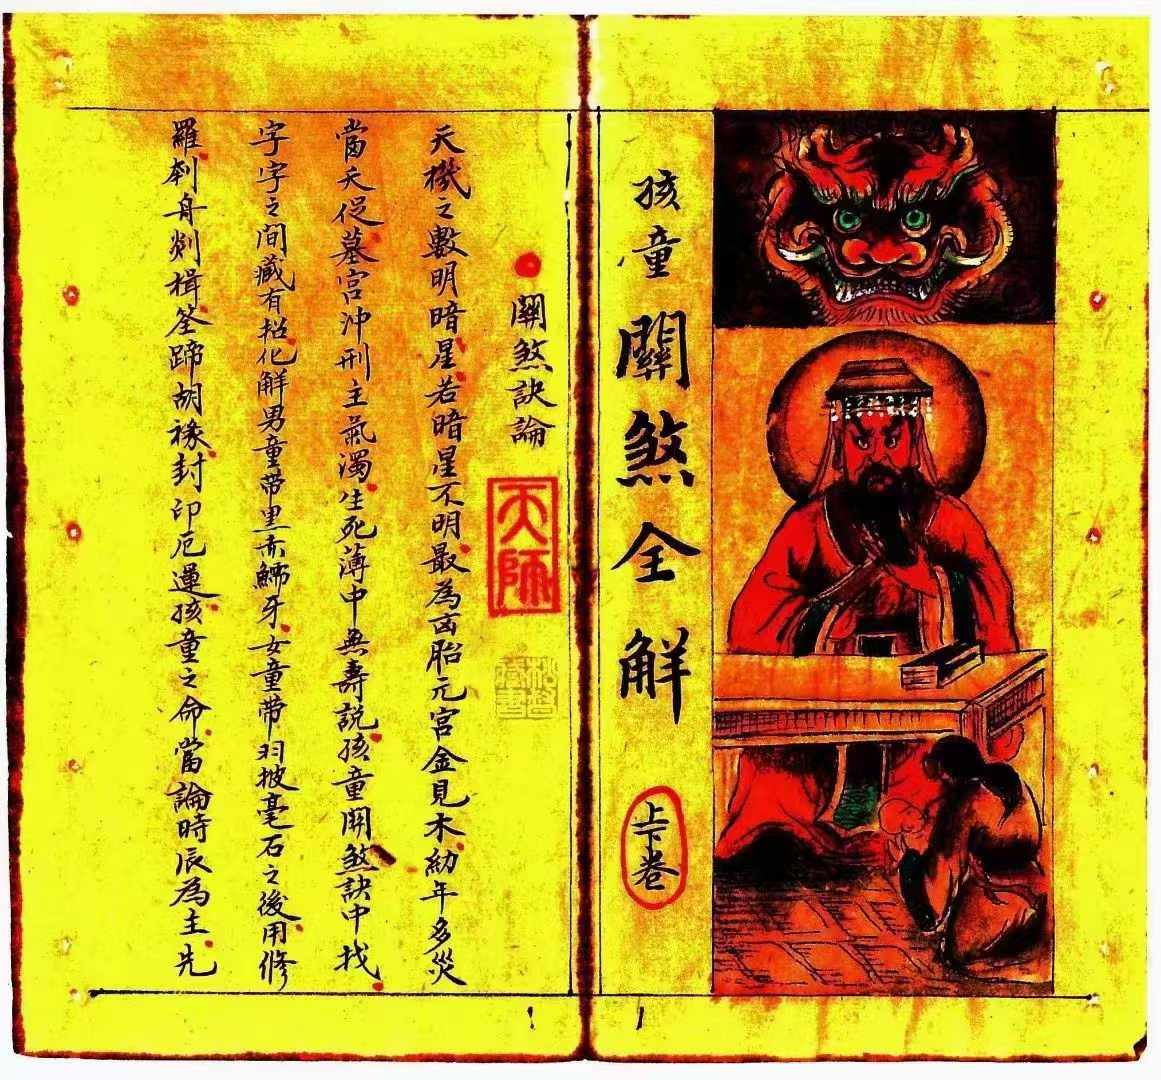 孩童關煞全解
上下卷
關煞訣論
天師
天機之數明暗星若暗星不明最為凶胎元宮金見木幼年多災
當夭促墓宮沖刑主氣濁生死薄中無壽說孩童關煞訣中找
字字之間藏有招化解男童帶黑赤鱬牙女童帶羽披毫石之後用修
羅刹舟剡楫筌蹄胡祿封印厄運孩童之命當論時辰為主先